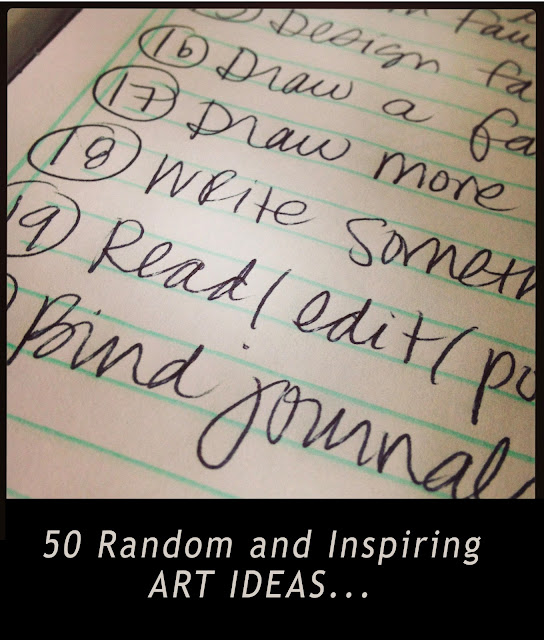 Design fa
16 Draw a fa
17 Draw more
18 Write someth
19 Read/edit/po
Bind journal
50 Random and Inspiring
ART IDEAS...